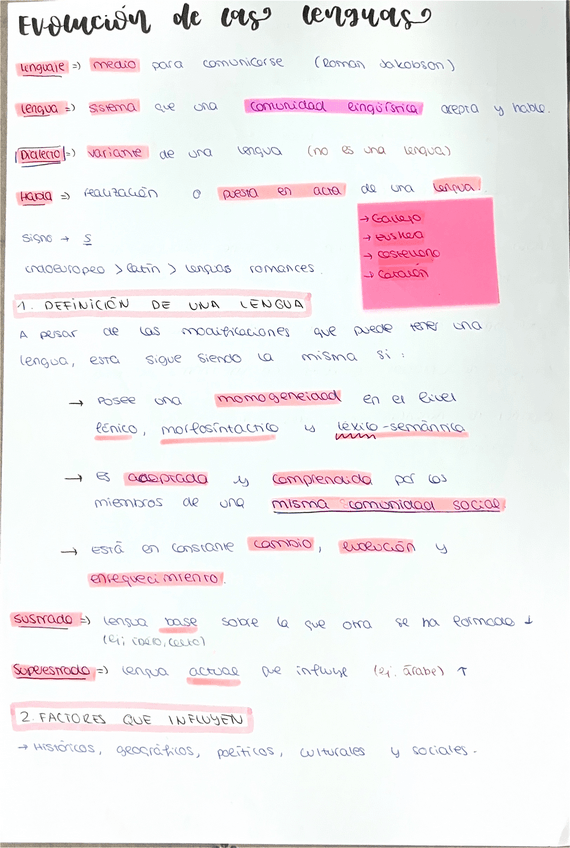 Evolución de las lenguas
Lenguaje => medio para comunicarse (Roman Jakobson)
Lengua => sistema que una comunidad lingüística acepta y habla.
Dialecto => variante de una lengua (no es una lengua)
Habla => realización o puesta en acta de una lengua.
signo → s
→ Gallego
→ euskera
→ castellano
→ Catalán
indoeuropeo > latín > lenguas romances.
1. DEFINICIÓN DE UNA LENGUA
A pesar de las modificaciones que puede tener una
lengua, esta sigue siendo la misma si:
→ Posee una homogeneidad en el nivel
fónico, morfosintáctico y léxico-semántica
→ Es adeptada y comprendida por los
miembros de una misma comunidad social
→ está en constante cambio, evolución y
enrequecimiento.
Sustrado => lengua base sobre la que otra se ha formado ↓
Superestrado => lengua actual que influye (ej. árabe) ↑
2. FACTORES QUE INFLUYEN
→ Históricos, geográficos, políticos, culturales y sociales.